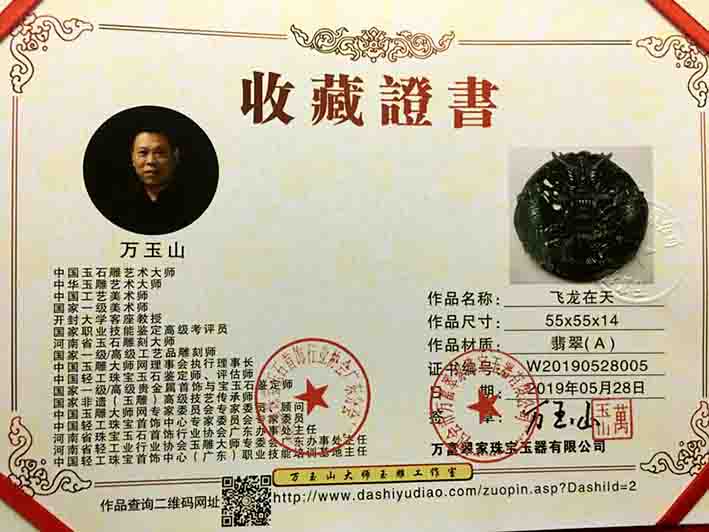 收藏證書
万玉山
中国玉石雕艺术大师
中华玉雕艺术大师
中国工艺美术师
国家一级美术师
开封大学客座教授
国家职业技能鉴定高级考评员
河南省玉石雕刻大师
国家一级/高级工艺品雕刻师
中国玉雕大师网理事会执行理事长
中国轻工珠宝玉石鉴定师、评估师
国家一级/高级贵金属首饰与宝玉石鉴定师
国家非遗（玉雕）高级技艺传承师
中国玉雕大师网专家委员会专家委员、顾问
中国轻工珠宝首饰中心专家委员会专家委员
河南省珠宝玉石首饰行业协会广东办事处主任
河南省轻工业行业协会玉雕大师专委会广东办事处主任
中国轻工珠宝首饰中心（广东）职业技能培训基地主任
作品名称: 飞龙在天
作品尺寸: 55x55x14
作品材质: 翡翠(A)
证书编号: W20190528005
日期: 2019年05月28日
签章: 万玉山
萬玉山
万富翠家珠宝玉器有限公司
万玉山大师玉雕工作室
作品查询二维码网址
http://www.dashiyudiao.com/zuopin.asp?DashiId=2